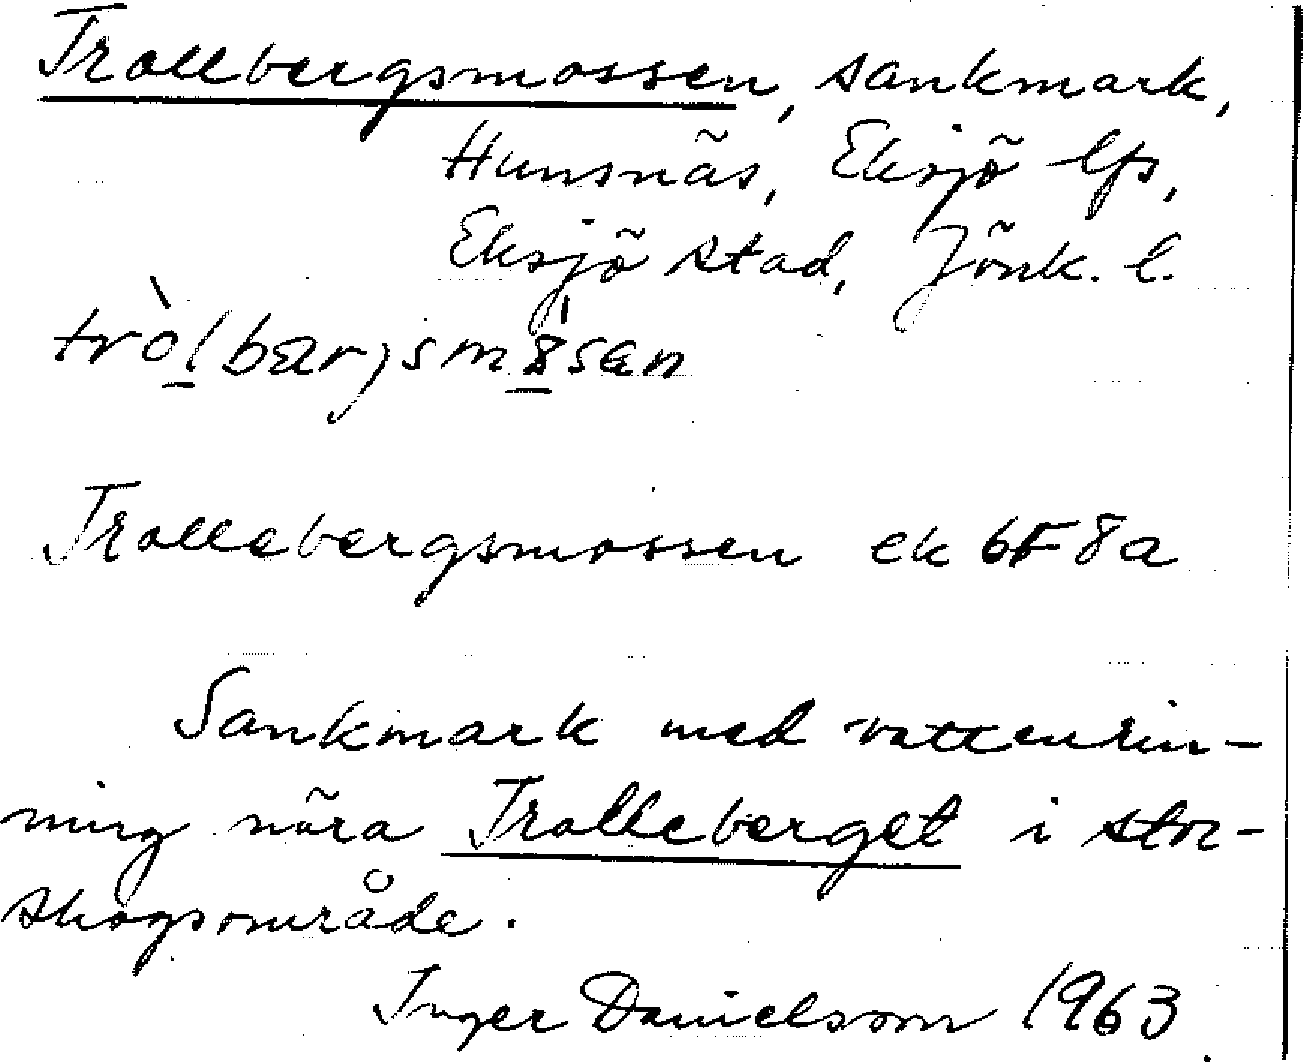 Trollbergsmossen, sankmark,
Hunsnäs, Eksjö lfs,
Eksjö stad, Jönk. l.
Trollebergsmossen ek 6F 8a
Sankmark med vattenrin-
ning nära Trolleberget i stor-
skogsområde.
Inger Danielsson 1963